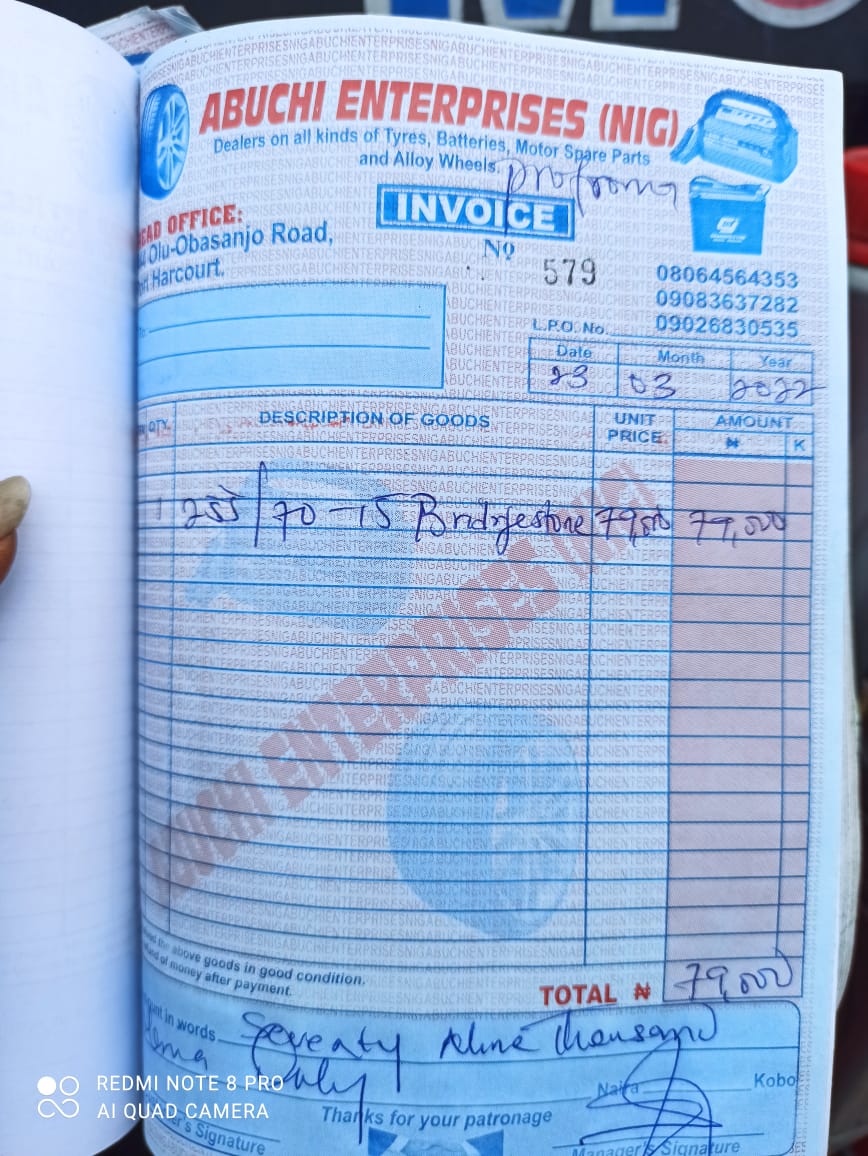 ABUCHI ENTERPRISES (NIG)
Dealers on all kinds of Tyres, Batteries, Motor Spare Parts
and Alloy Wheels.
proforma
INVOICE
EAD OFFICE:
Olu-Obasanjo Road,
Harcourt.
Nº 579
08064564353
09083637282
09026830535
L.P.O. No.
Date Month Year
23 03 2022
QTY. DESCRIPTION OF GOODS UNIT PRICE AMOUNT
₦ K
1 255/70-15 Bridgestone 79,000 79,000
ABUCHI ENTERPRISES (NIG)
the above goods in good condition.
of money after payment.
TOTAL ₦ 79,000
in words Seventy Nine Thousand
only
Naira Kobo
Thanks for your patronage
Signature
Manager's Signature
REDMI NOTE 8 PRO
AI QUAD CAMERA